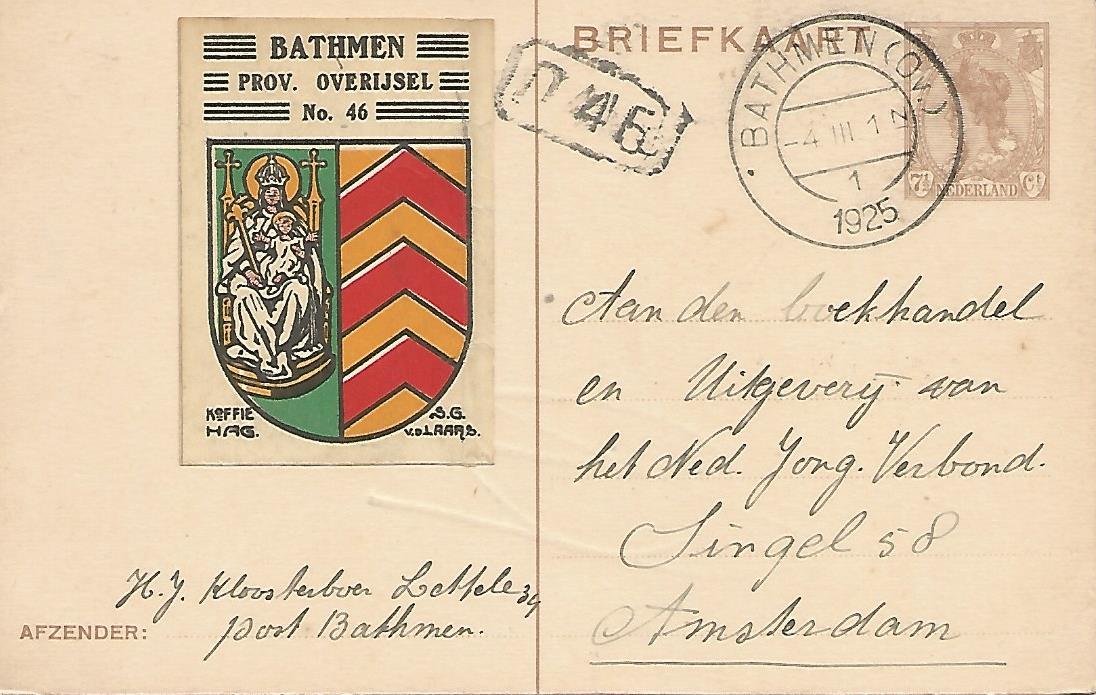 BATHMEN
PROV. OVERIJSEL
No. 46
KOFFIE
HAG.
S.G.
v.d LAARS.
BRIEFKAART
46
BATHMEN (OV.)
-4 III 1 N
1
1925
7½ NEDERLAND Ct
Aan den boekhandel
en Uitgeverij van
het Ned. Jong. Verbond.
Singel 58
Amsterdam
H. J. Kloosterboer Lettele 34
AFZENDER: post Bathmen.